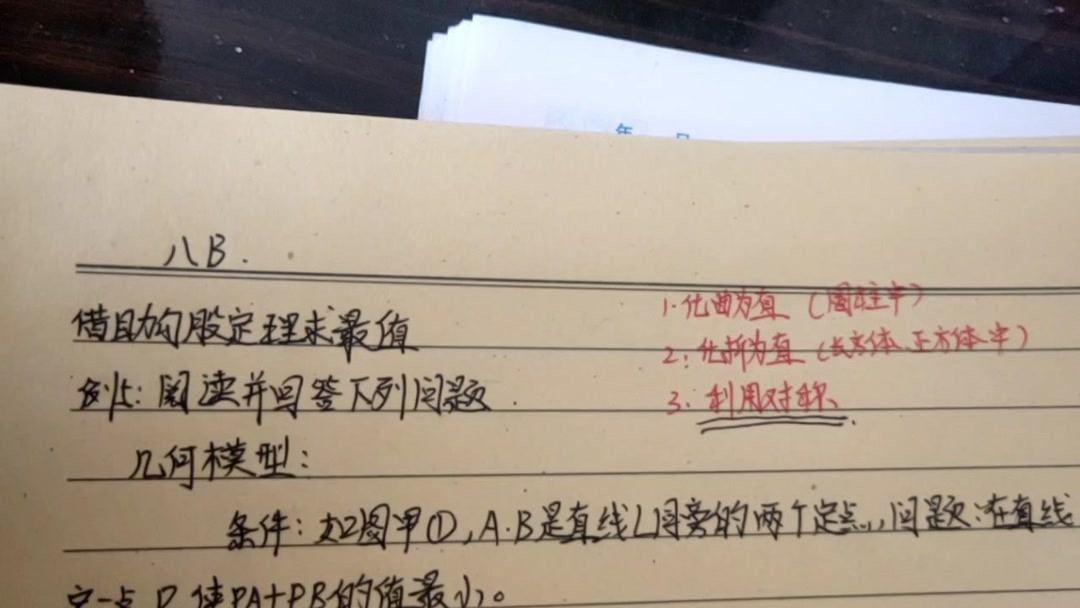 年 月
八B.
借助勾股定理求最值
1.化曲为直（圆柱中）
2.化折为直（长方体、正方体中）
例5:阅读并回答下列问题.
3.利用对称.
几何模型:
条件:如图甲①,A.B是直线L同旁的两个定点.,问题:在直线
定一点P使PA+PB的值最小。